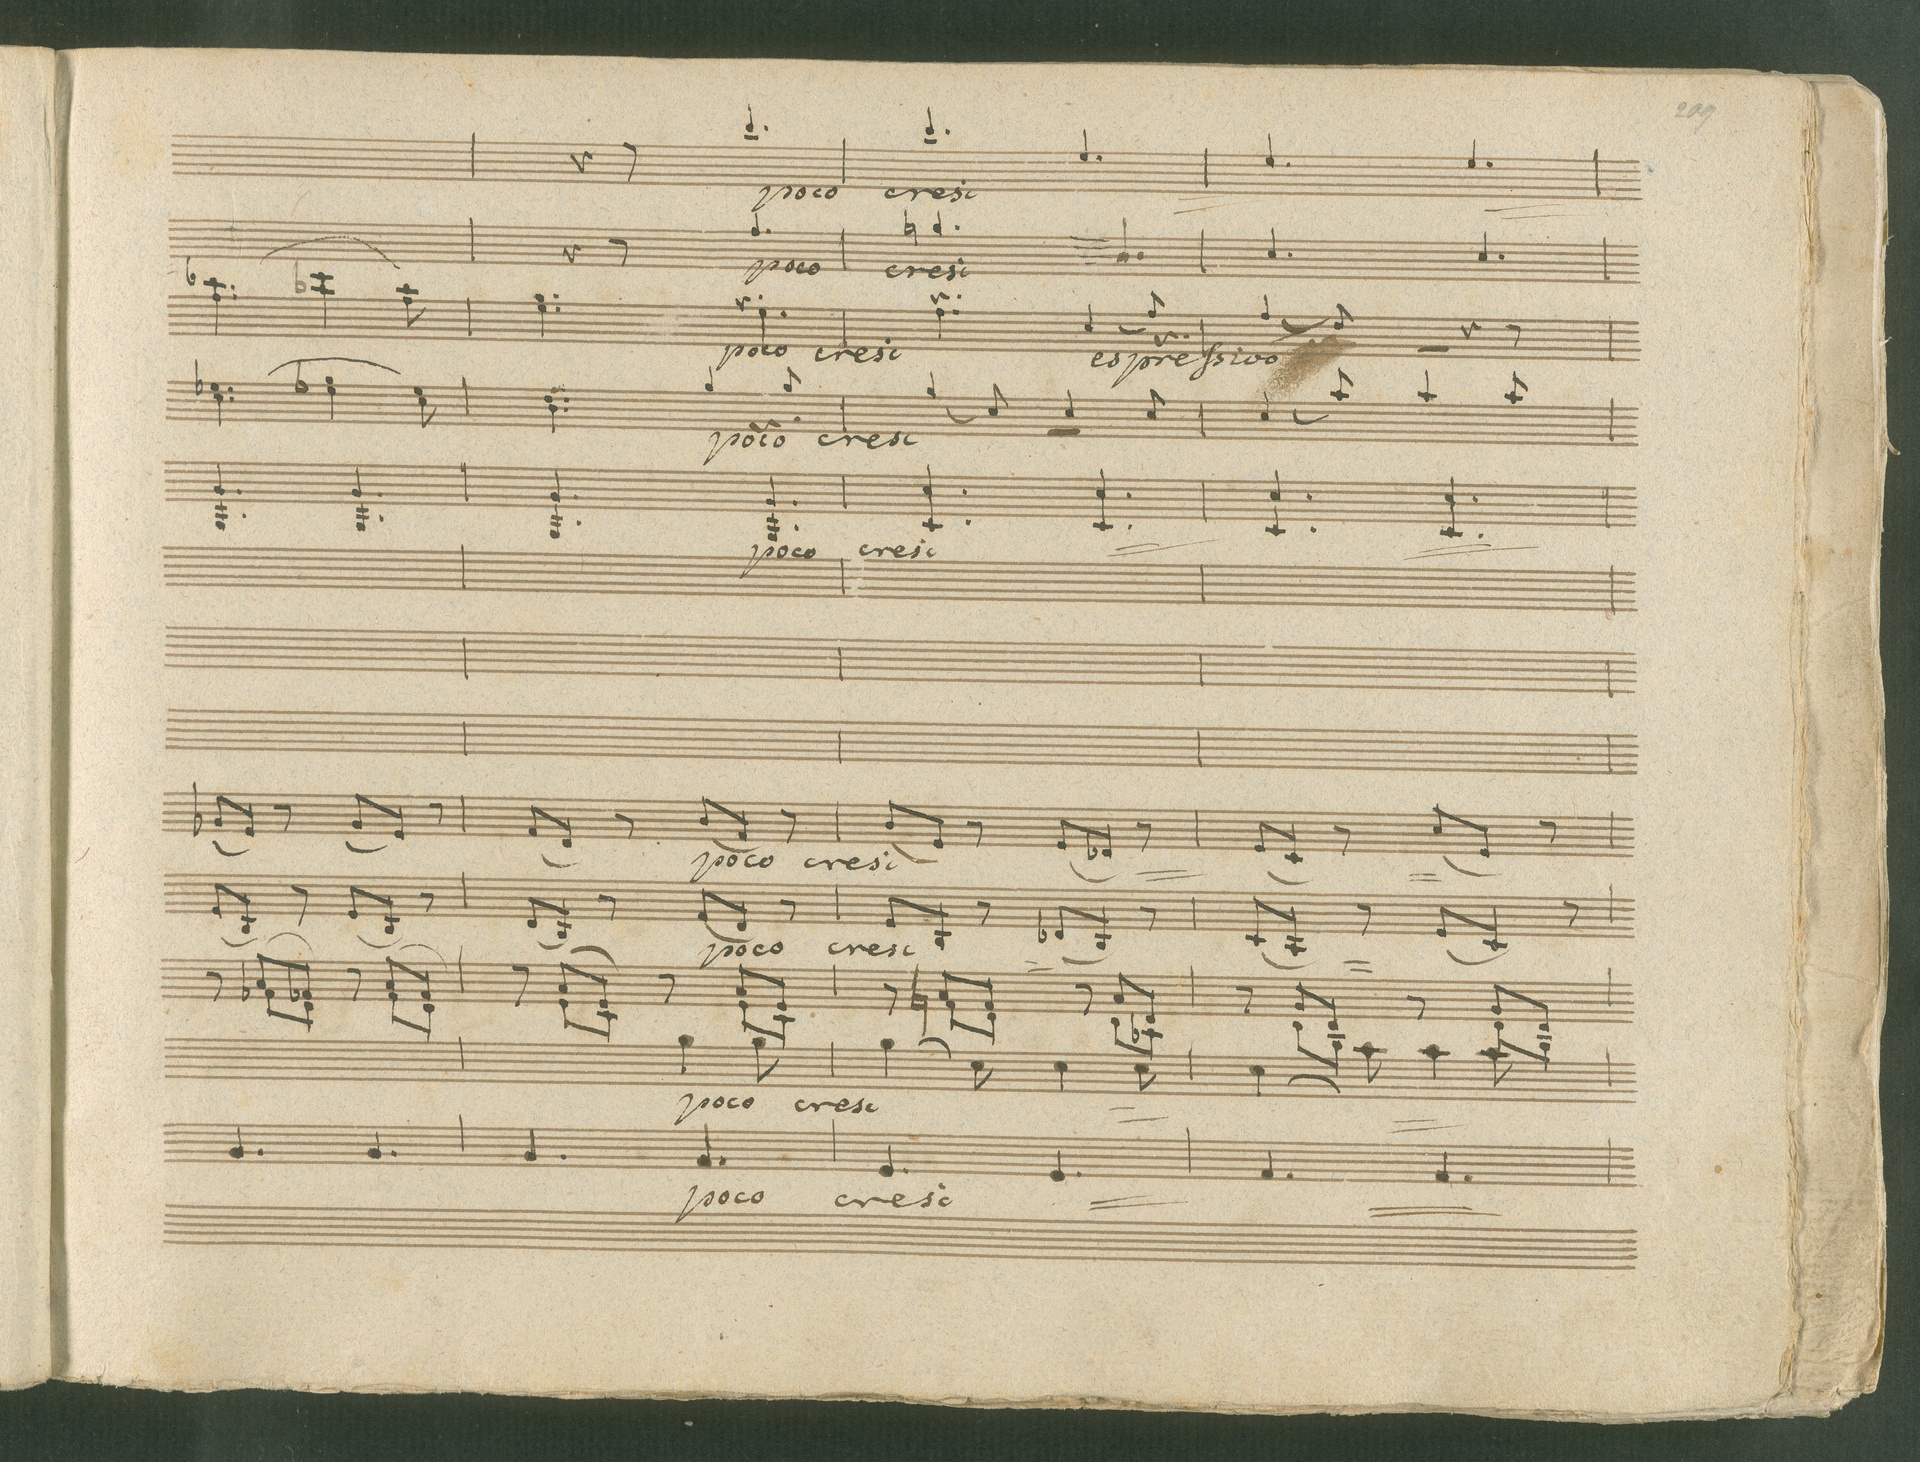 209
poco cresc
poco cresc
poco cresc espressivo
poco cresc
poco cresc
poco cresc
poco cresc
poco cresc
poco cresc